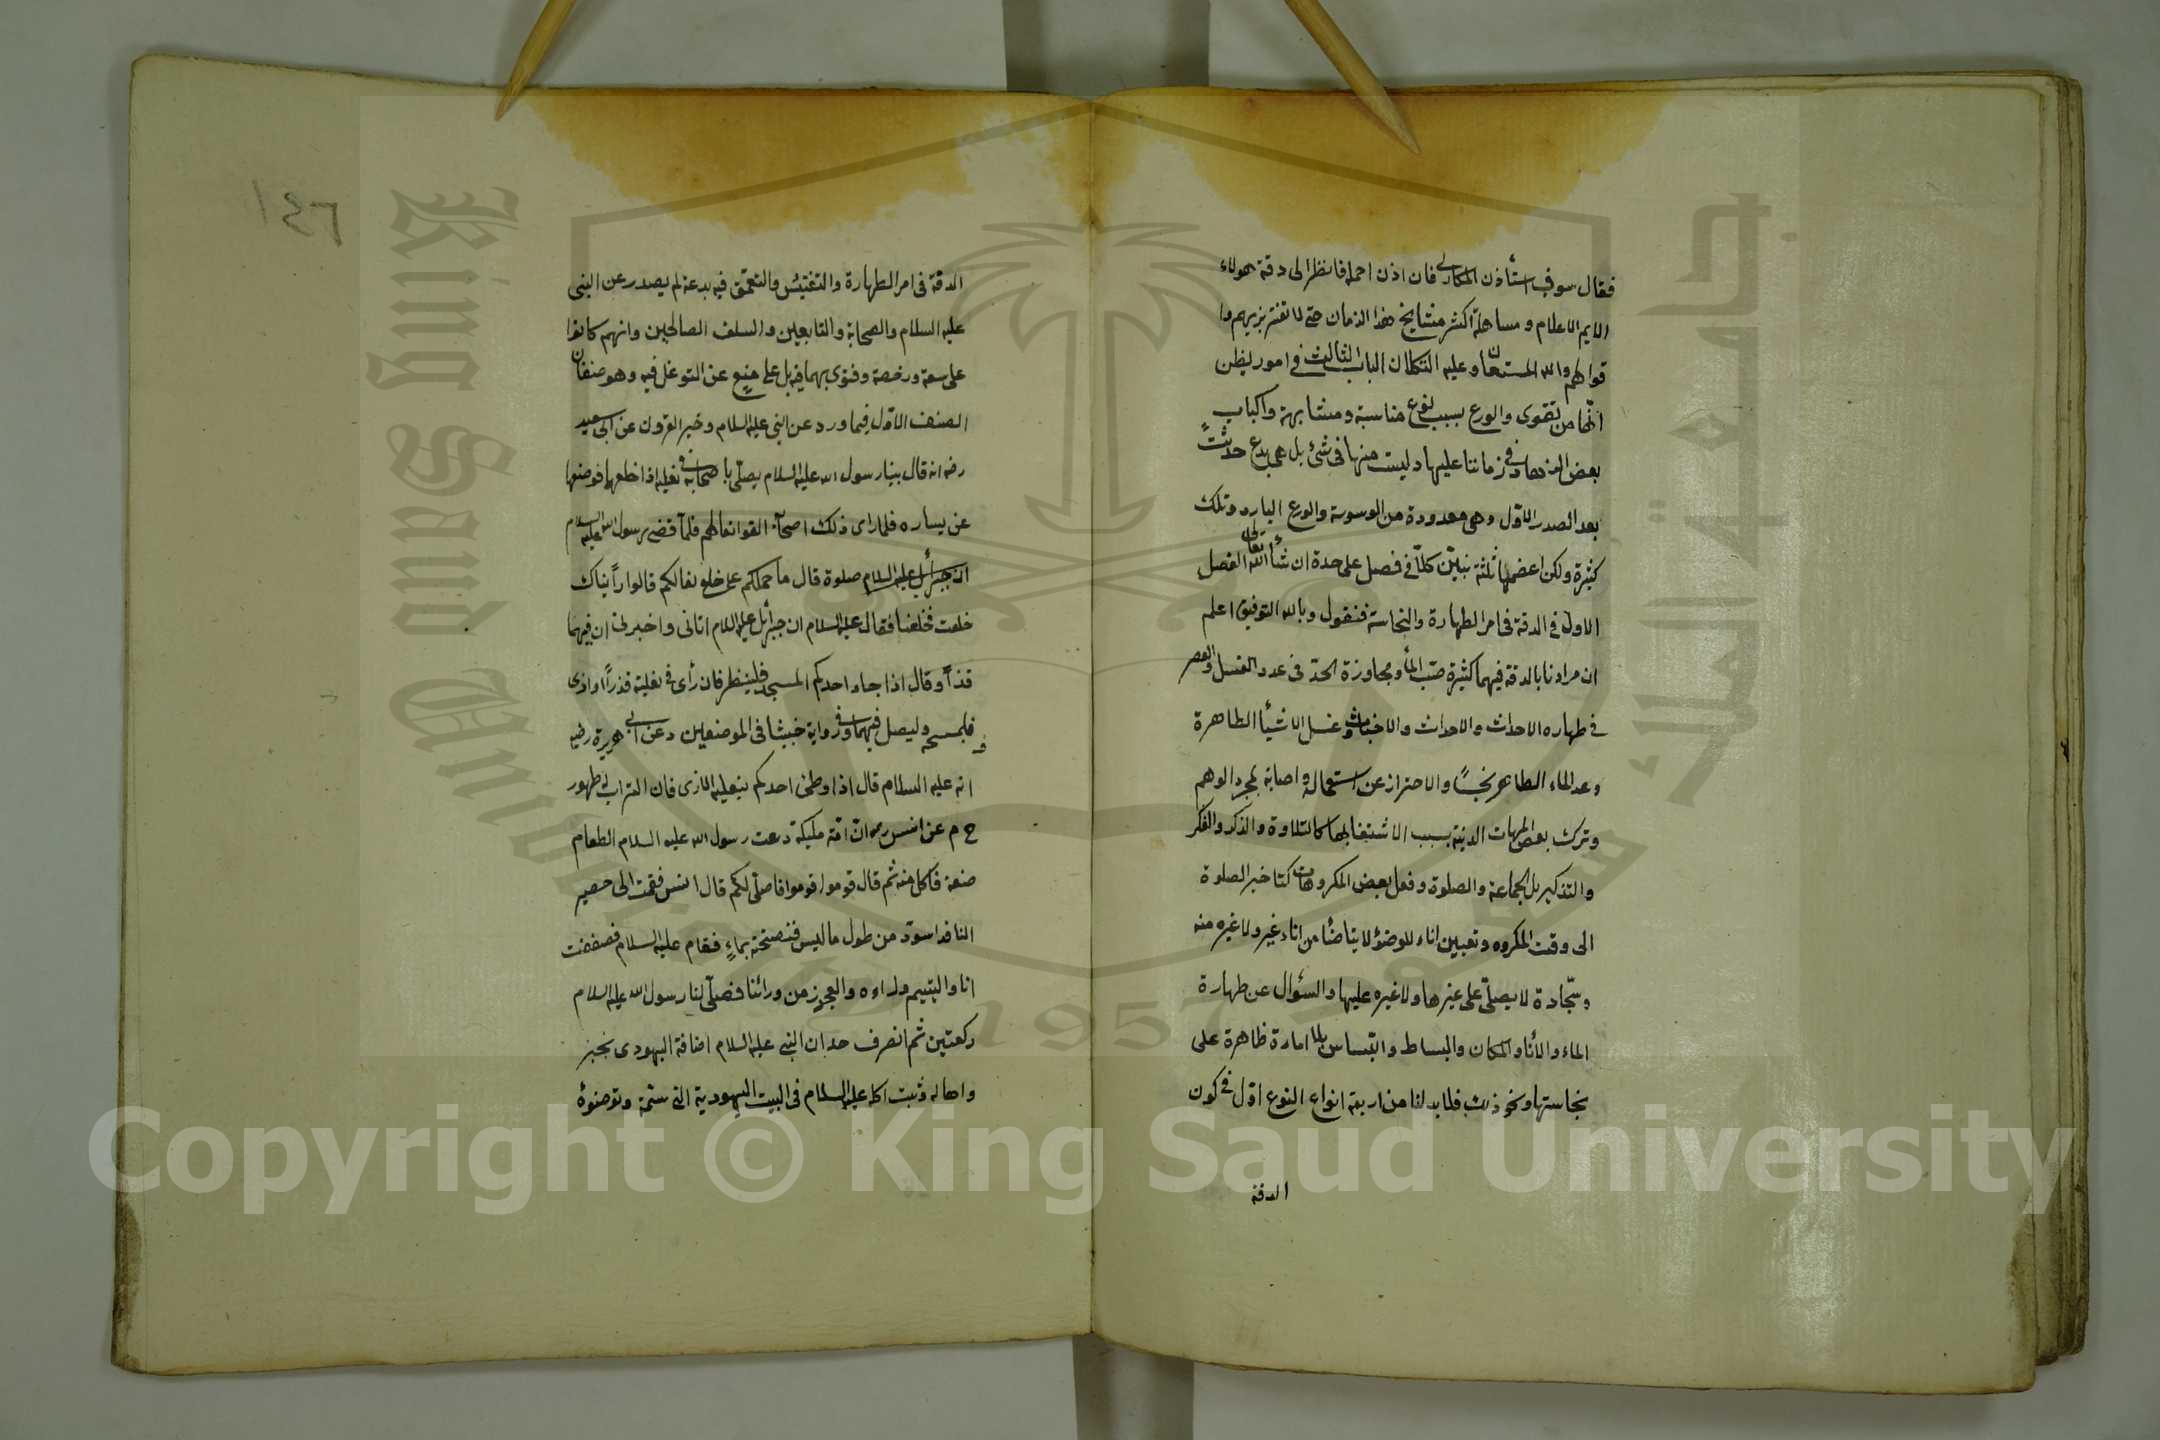 فقال سوف استأذن المكارى فان اذن احمله فانظر الى دقة هولاء
الايم الاعلام و مساهلة اكثر مشايخ هذا الزمان حتى لا تغتر بزيهم وا
قوالهم والله المستعان وعليه التكلان الباب الثالث فى امور يظن
انها من تقوى والورع بسبب نوع مناسبة ومشابهة واكباب
بعض الزهاد فى زماننا عليها وليست منها فى شئ بل هى بدع حدثت
بعد الصدر الاول وهى معدودة من الوسوسة والورع البارد وتلك
كثيرة ولكن اعضمها ثلثة نبين كلا فى فصل على حدة ان شأ الله تعالى الفصل
الاول فى الدقة فى امر الطهارة والنجاسة فنقول وبالله التوفيق اعلم
ان مرادنا بالدقة فيهما كثيرة صب المأ ومجاوزة الحد فى عدد الغسل والعصر
فى طهاره الاحداث والاحداث والاخباث وغسل الاشيأ الطاهرة
وعد الماء الطاهر نجسًا والاحتراز عن استعماله واصابة بمجرد الوهم
وترك بعض المهمات الدينية بسبب الاشتغا لها كالتلاوة والذكر والفكر
والتذكير بل الجماعة والصلوة وفعل بعض المكروهات كتاخير الصلوة
الى وقت المكروه وتعيين اناء للوضؤ لا يتاضأ من اناء غير ولا غيره منه
وسجادة لا يصلى على غيرها ولا غيره عليها والسؤال عن طهارة
الماء والأناء والمكان والبساط والتباس بلا امارة ظاهرة على
نجاستها ونحو ذلك فلا بد لنا من اربعة انواع النوع اول فى كون
الدقة
١٤٦
الدقة فى امر الطهارة والتفتيش والتعمق فيه بدعة لم يصدر عن النبى
عليه السلام والصحابة والتابعين والسلف الصالحين وانهم كانوا
على سعة ورخصة وفتوى بهما فيه بل على منع عن التوغل فيه وهو صنفان
الصنف الاول فيما ورد عن النبى عليه السلام وخير القرون عن ابى سعيد
رضه انه قال بينا رسول الله عليه السلام يصلى باصحابه فى نعليه اذا خلعها فوضعها
عن يساره فلما راى ذلك اصحابه القوا نعالهم فلما قضى رسول الله عليه السلام
ان جبرأيل عليه السلام صلوة قال ما حملكم على خلو نعالكم قالوا رأيناك
خلعت فخلعنا فقال عليه السلام ان جبرأيل عليه السلام اتانى واخبرنى ان فيهما
قذرًا وقال اذا جاء احدكم المسجد فلينظر فان رأى فى نعليه قذرًا او اذى
فليمسحه وليصل فيهما وفى رواية خبيثا فى الموضعين وعن ابى هريرة رضه
انه عليه السلام قال اذا وطئ احدكم بنعليه الاذى فان التراب له طهور
خ م عن انس رضه ان امه مليكة دعت رسول الله عليه السلام الطعام
صنعة فاكل منه ثم قال قوموا قوموا فاصلى لكم قال انس فقمت الى حصير
النا قد اسود من طول ما لبس فنضحته بماءٍ فقام عليه السلام فصففت
انا واليتيم وراءه والعجوز من ورائنا فصلى لنا رسول الله عليه السلام
ركعتين ثم انصرف حد ان النبى عليه السلام اضافة اليهودى بخبز
واهاله وثبت اكله عليه السلام فى البيت اليهودية التى سمته وتوضؤه
King Saud University
جامعة الملك سعود
1957
Copyright © King Saud University